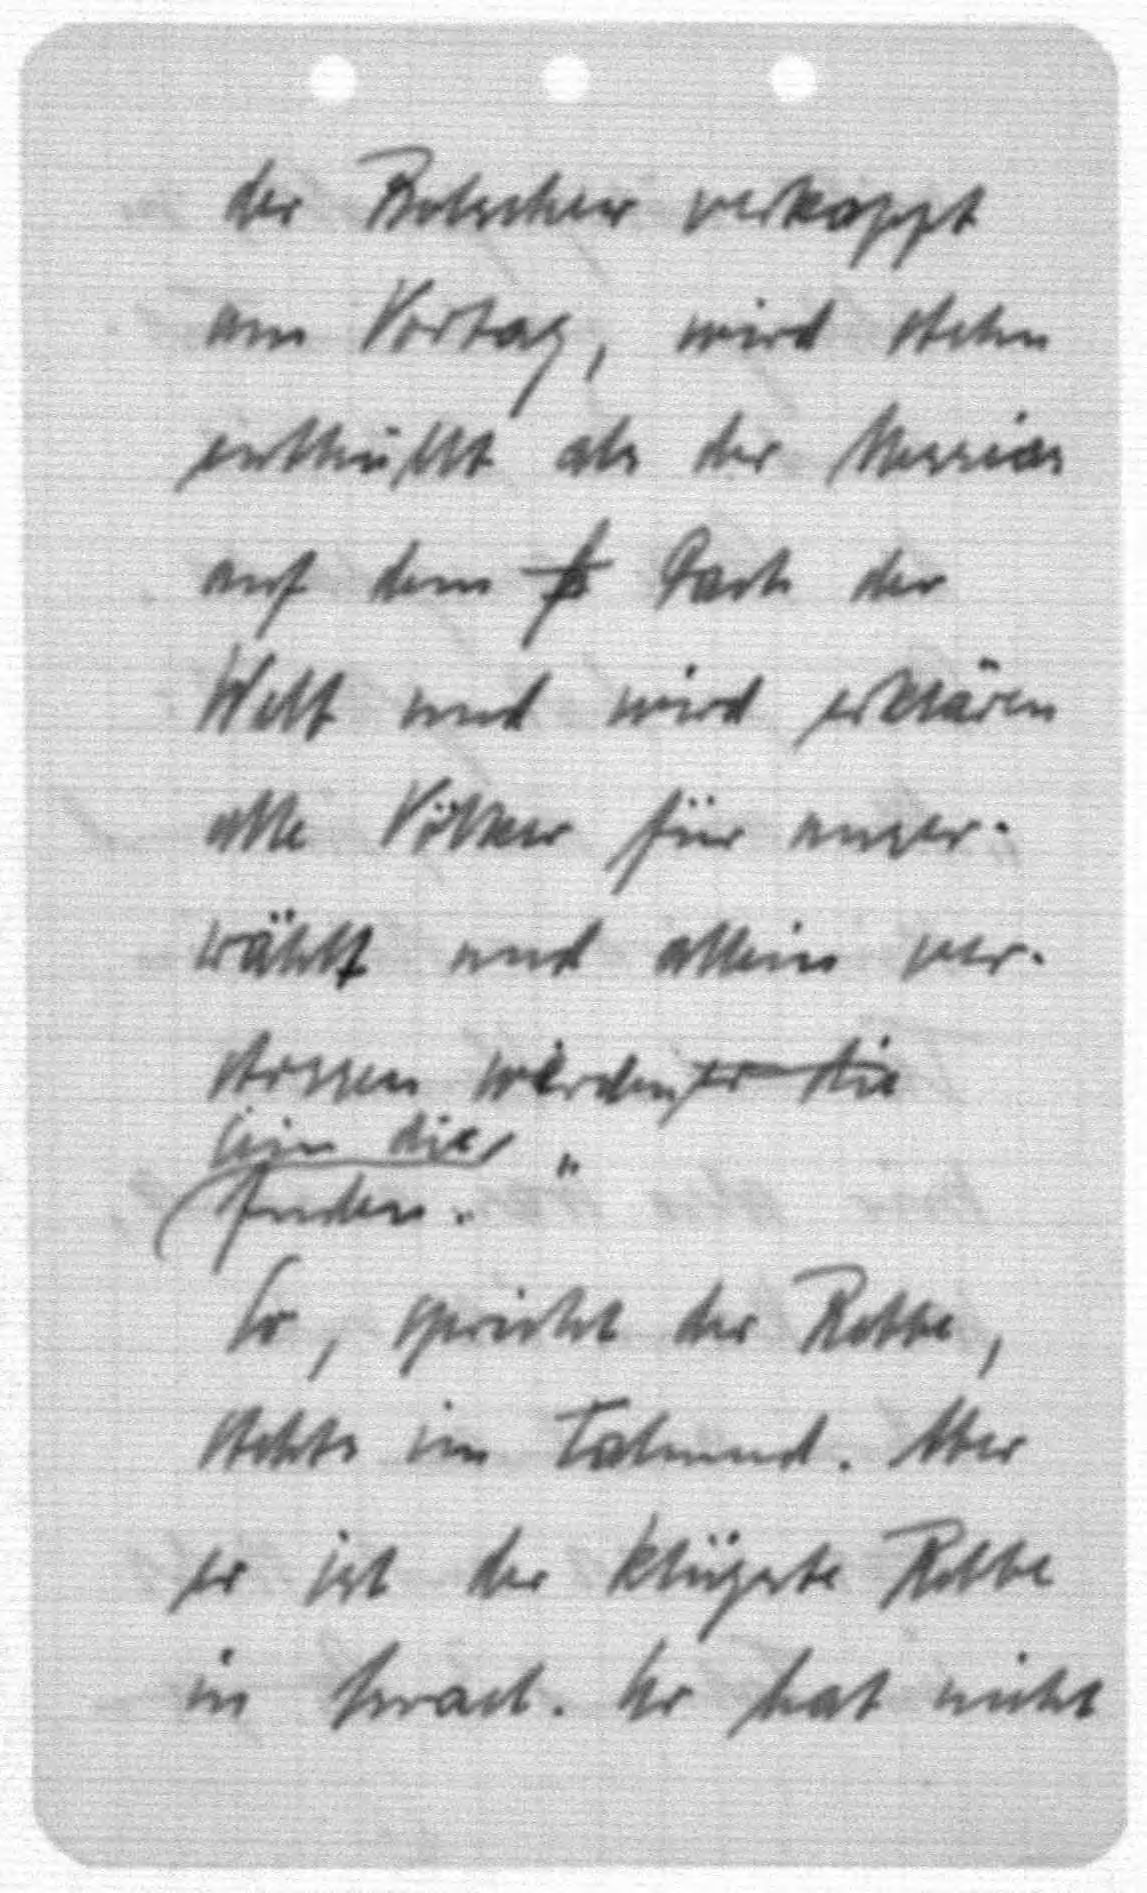 der Bolschew verkappt
am Vortag, wird stehn
enthüllt als der Messias
auf dem Dach der
Welt und wird erklären
alle Völker für auser-
wählt und allein ver-
stossen werden
sein die
Juden."
So, spricht der Rebbe,
stehts im Talmud. Aber
er ist der klügste Rebbe
in Israel. Er hat nicht